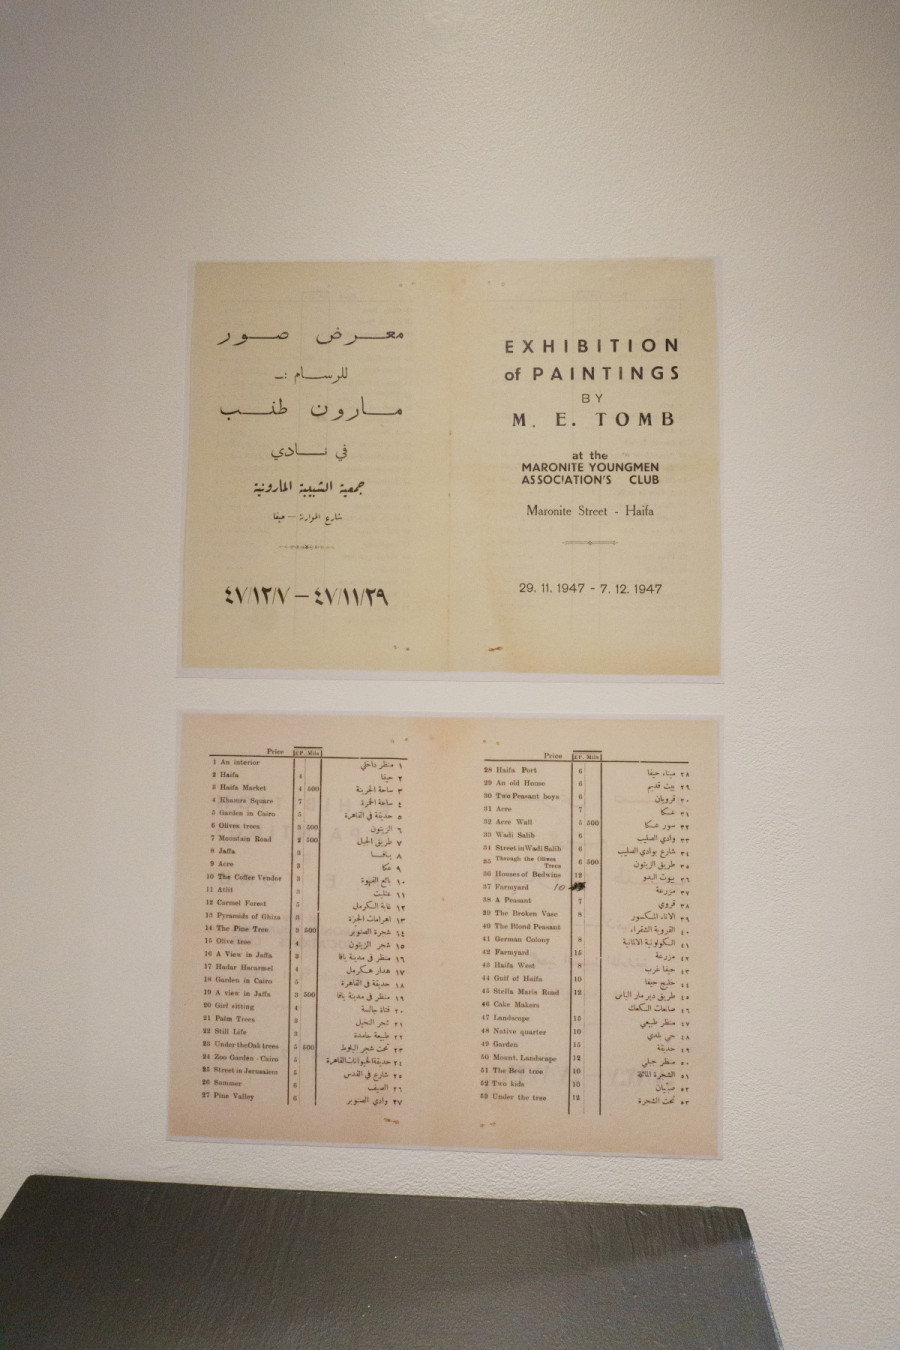 معرض صور
للرسام :ـ
مارون طنب
في نادي
جمعية الشبيبة المارونية
شارع الموارنة — حيفا
٤٧/١٢/٧ — ٤٧/١١/٢٩
EXHIBITION
of PAINTINGS
BY
M. E. TOMB
at the
MARONITE YOUNGMEN
ASSOCIATION'S CLUB
Maronite Street - Haifa
29. 11. 1947 - 7. 12. 1947
Price £P. Mils
1 An interior منظر داخلي ١
2 Haifa 4 حيفا ٢
3 Haifa Market 4 500 ساحة الجرينة ٣
4 Khamra Square 7 ساحة الحمرة ٤
5 Garden in Cairo 5 حديقة في القاهرة ٥
6 Olives trees 3 500 الزيتون ٦
7 Mountain Road 2 500 طريق الجبل ٧
8 Jaffa 3 يافا ٨
9 Acre 3 عكا ٩
10 The Coffee Vendor 3 بائع القهوة ١٠
11 Atlit 3 عتليت ١١
12 Carmel Forest 5 غابة الكرمل ١٢
13 Pyramids of Ghiza اهرامات الجيزة ١٣
14 The Pine Tree 3 500 شجرة الصنوبر ١٤
15 Olive tree 4 شجر الزيتون ١٥
16 A View in Jaffa 3 منظر في مدينة يافا ١٦
17 Hadar Hacarmel 4 هدار هكرمل ١٧
18 Garden in Cairo 5 حديقة في القاهرة ١٨
19 A view in Jaffa 3 500 منظر في مدينة يافا ١٩
20 Girl sitting 4 فتاة جالسة ٢٠
21 Palm Trees 3 شجر النخيل ٢١
22 Still Life 3 طبيعة جامدة ٢٢
23 Under the Oak trees 5 500 تحت شجر البلوط ٢٣
24 Zoo Garden - Cairo 5 حديقة الحيوانات القاهرة ٢٤
25 Street in Jerusalem 5 شارع في القدس ٢٥
26 Summer 6 الصيف ٢٦
27 Pine Valley 6 وادي الصنوبر ٢٧
Price £P. Mils
28 Haifa Port 6 ميناء حيفا ٢٨
29 An old House 6 بيت قديم ٢٩
30 Two Peasant boys 6 قرويان ٣٠
31 Acre 7 عكا ٣١
32 Acre Wall 5 500 سور عكا ٣٢
33 Wadi Salib 6 وادي الصليب ٣٣
34 Street in Wadi Salib 6 شارع بوادي الصليب ٣٤
35 Through the Olives Trees 6 500 طريق الزيتون ٣٥
36 Houses of Bedwins 12 بيوت البدو ٣٦
37 Farmyard 10 مزرعة ٣٧
38 A Peasant 7 قروي ٣٨
39 The Broken Vase 8 الاناء المكسور ٣٩
40 The Blond Peasant القروية الشقراء ٤٠
41 German Colony 8 الكولونية الالمانية ٤١
42 Farmyard 15 مزرعة ٤٢
43 Haifa West 8 حيفا غرب ٤٣
44 Gulf of Haifa 10 خليج حيفا ٤٤
45 Stella Maris Road 12 طريق دير مار الياس ٤٥
46 Cake Makers صانعات الكعك ٤٦
47 Landscape 15 منظر طبيعي ٤٧
48 Native quarter 10 حي بلدي ٤٨
49 Garden 15 حديقة ٤٩
50 Mount. Landscape 12 منظر جبلي ٥٠
51 The Bent tree 10 الشجرة المائلة ٥١
52 Two kids 10 صبيان ٥٢
53 Under the tree 12 تحت الشجرة ٥٣